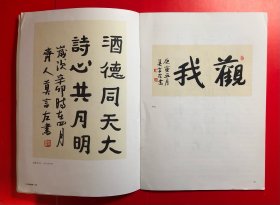 酒德同天大
詩心共月明
歲次辛卯時在四月
齊人莫言左書
觀我
莫言左書